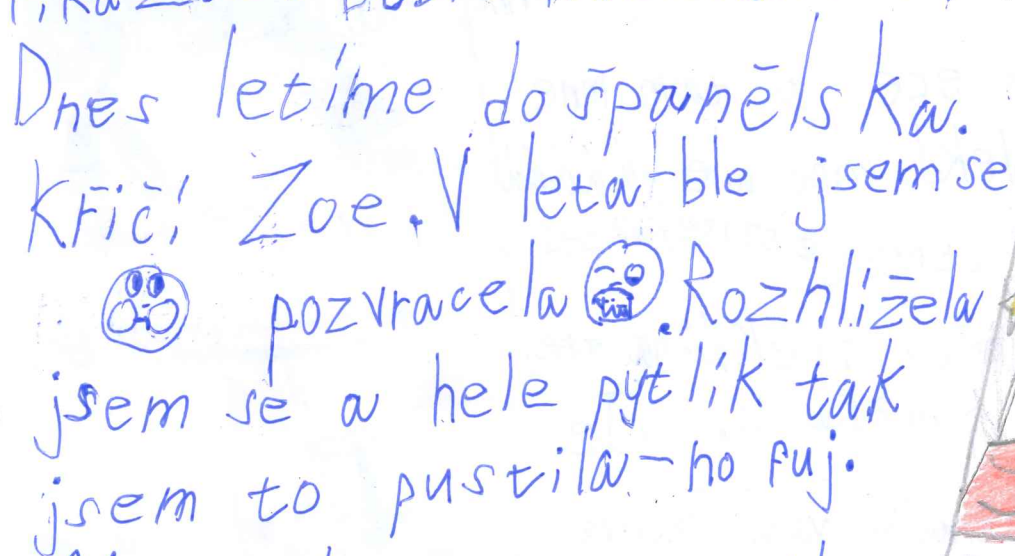 Dnes letíme do španělska.
Křičí Zoe. V leta-ble jsem se
pozvracela. Rozhlížela
jsem se a hele pytlík tak
jsem to pustila-no fuj.